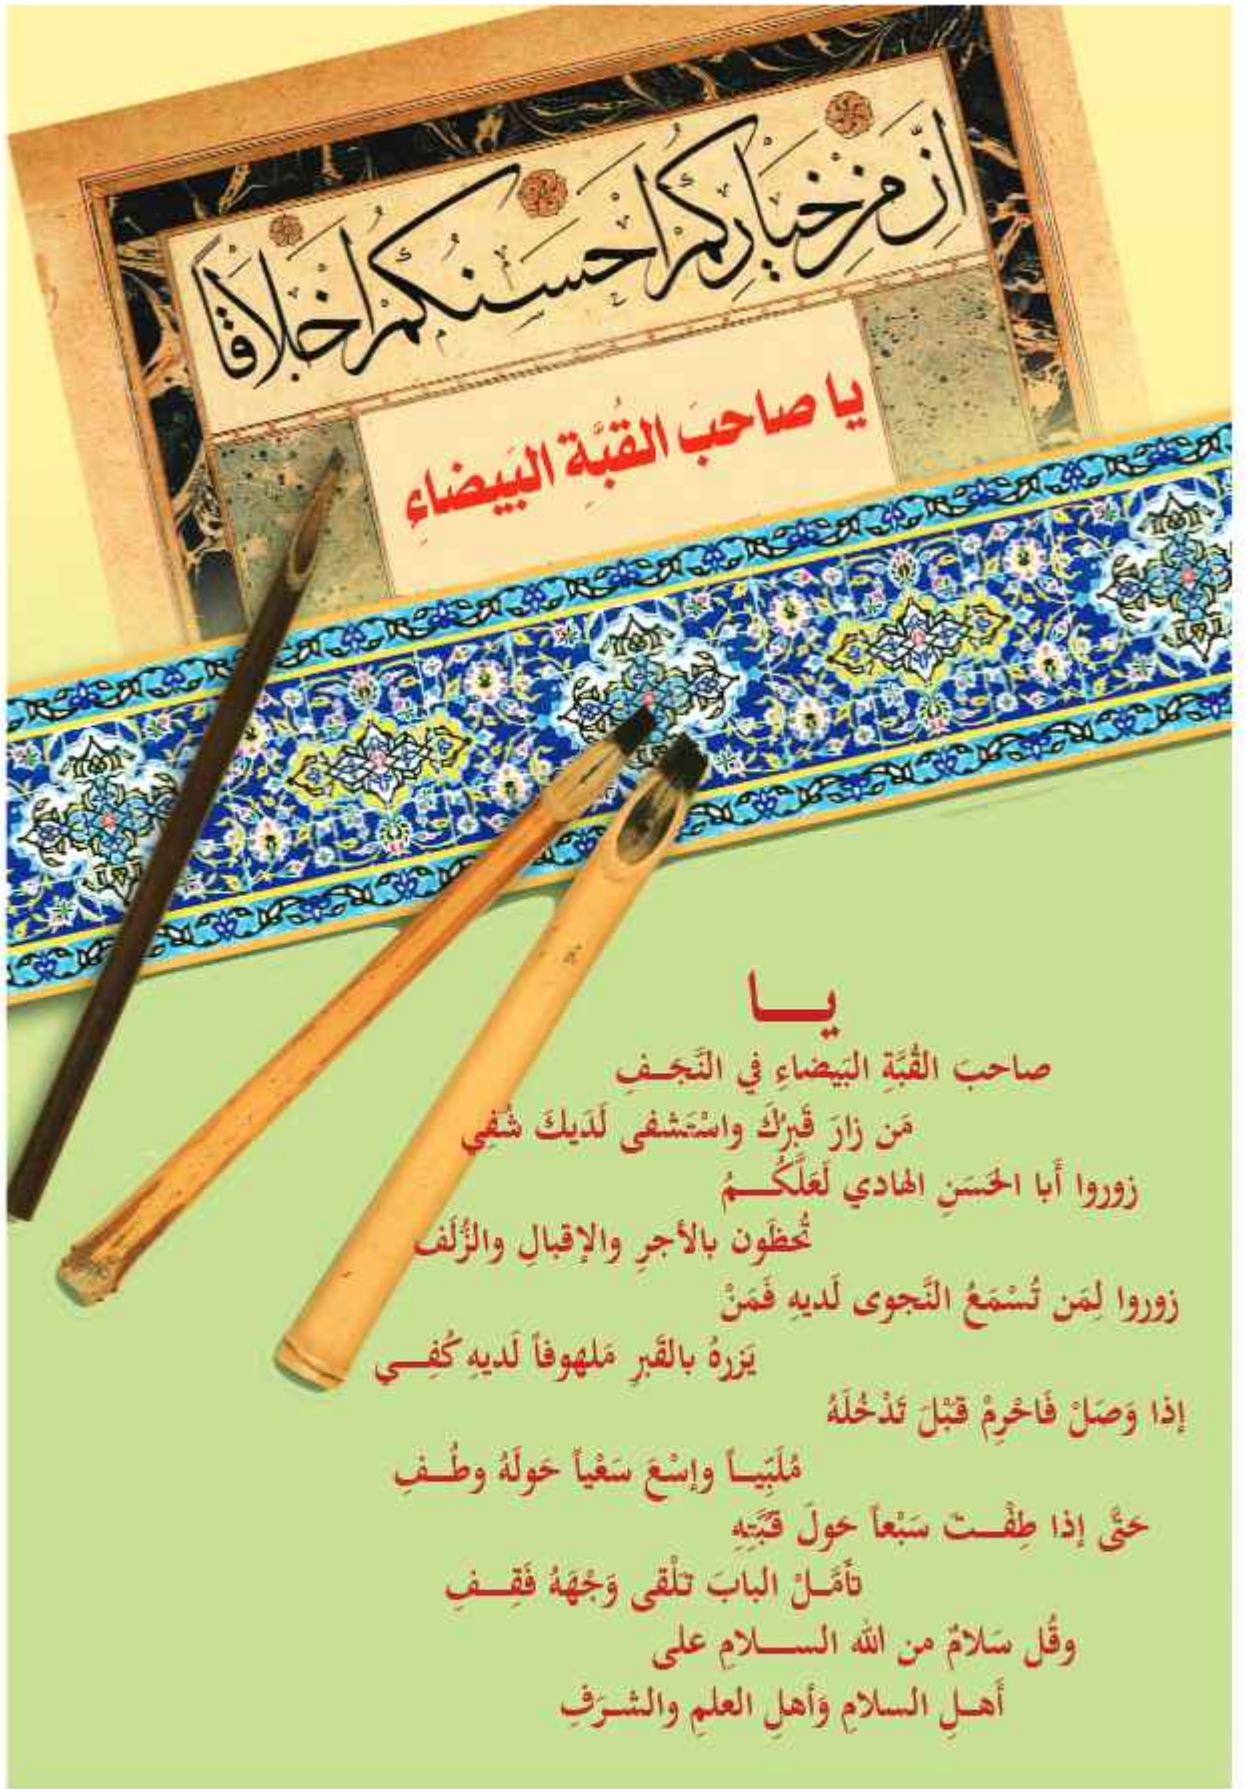 إنَّ مِنْ خِيَارِكُمْ أَحْسَنَكُمْ أَخْلَاقًا
يا صاحبَ القُبَّةِ البَيضاءِ
يـــا
صاحبَ القُبَّةِ البَيضاءِ في النَّجَـفِ
مَن زارَ قَبرُكَ واسْتَشفى لَدَيكَ شُفِي
زوروا أَبا الحَسَنِ الهادي لَعَلَّكُـــمُ
تُحظَون بالأجرِ والإقبالِ والزُّلَفِ
زوروا لِمَن تُسْمَعُ النَّجوى لَديهِ فَمَنْ
يَزرهُ بالقَبرِ مَلهوفاً لَديهِ كُفِـــي
إذا وَصَلْ فَاحْرِمْ قَبْلَ تَدْخُلَهُ
مُلَبِّيـاً وإسْعَ سَعْياً حَولَهُ وطُــفِ
حَتَّى إذا طِفْــتَ سَبْعاً حَولَ قُبَّتِهِ
تأَمَّـلْ البابَ تَلْقى وَجْهَهُ فَقِــفِ
وقُل سَلامٌ من الله الســـلامِ على
أَهـلِ السلامِ وَأهلِ العلمِ والشـرَفِ